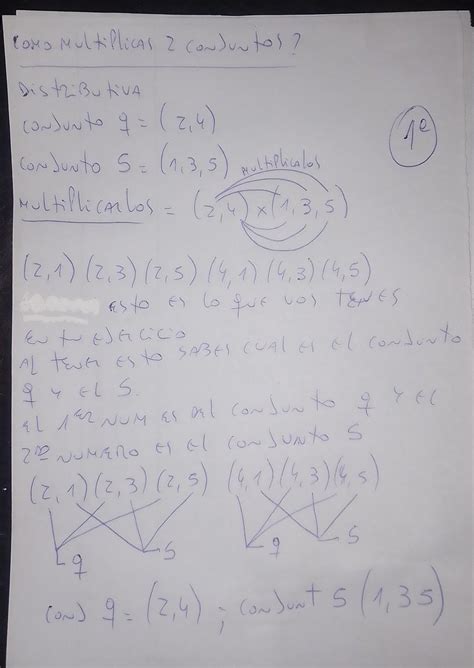 COMO MULTIPLICAS 2 CONJUNTOS?
DISTRIBUTIVA
CONJUNTO q = (2,4)
1º
CONJUNTO S = (1,3,5)
MULTIPLICALOS
MULTIPLICARLOS = (2,4) x (1,3,5)
(2,1) (2,3) (2,5) (4,1) (4,3) (4,5)
ESTO ES LO QUE VOS TENES
EN TU EJERCICIO
AL TENER ESTO SABES CUAL ES EL CONJUNTO
q Y EL S.
EL 1ER NUM ES DEL CONJUNTO q Y EL
2DO NUMERO ES EL CONJUNTO S
(2,1) (2,3) (2,5) (4,1) (4,3) (4,5)
q S q S
CONJ q = (2,4) ; CONJUNT S (1,3 5)